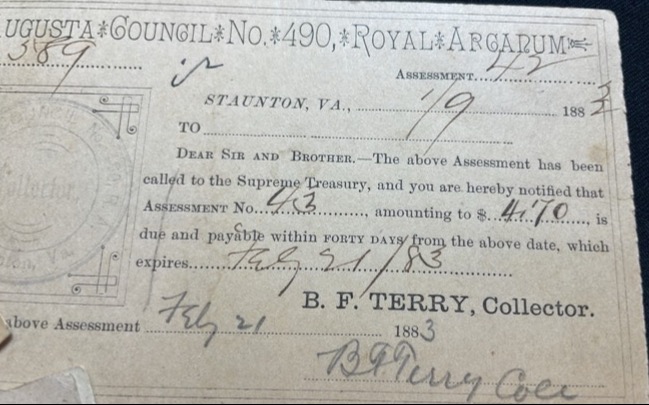 UGUSTA*COUNCIL*No.*490,*ROYAL*ARCANUM
389
ASSESSMENT....42
STAUNTON, VA., 1/9 1883
TO
DEAR SIR AND BROTHER.—The above Assessment has been
called to the Supreme Treasury, and you are hereby notified that
ASSESSMENT No...43......, amounting to $..4.70...., is
due and payable within FORTY DAYS from the above date, which
expires.....Feby 21/83
B. F. TERRY, Collector.
above Assessment Feby 21 1883
B F Terry Coll